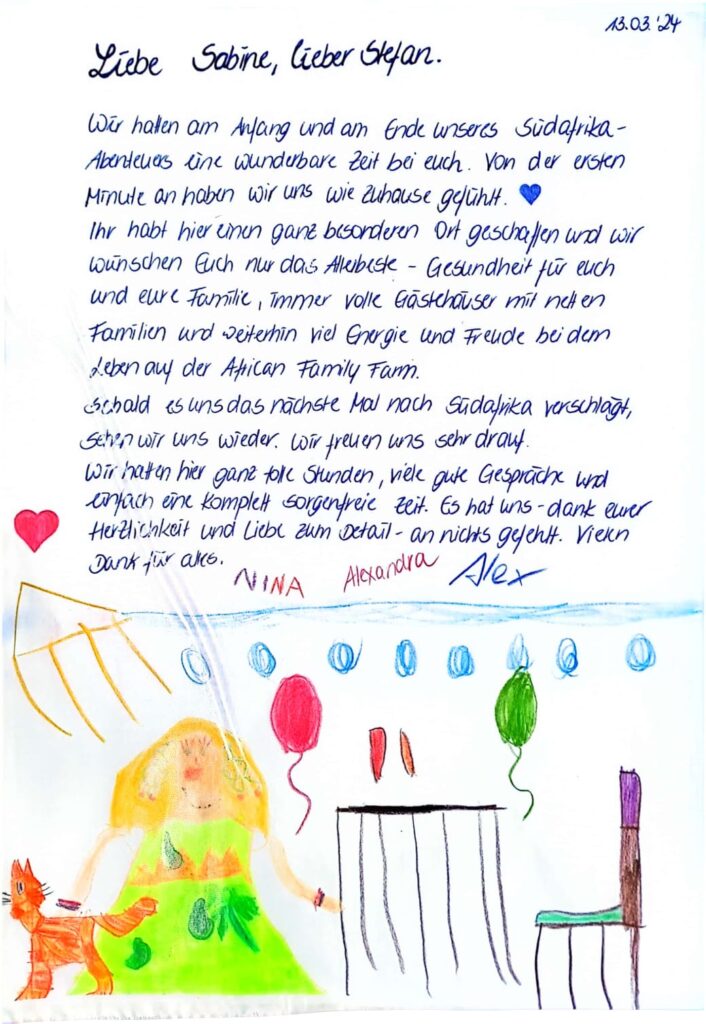 13.03.'24
Liebe Sabine, lieber Stefan.
Wir hatten am Anfang und am Ende unseres Südafrika-
Abenteuers eine wunderbare Zeit bei euch. Von der ersten
Minute an haben wir uns wie zuhause gefühlt.
Ihr habt hier einen ganz besonderen Ort geschaffen und wir
wünschen Euch nur das Allerbeste - Gesundheit für euch
und eure Familie, immer volle Gästehäuser mit netten
Familien und weiterhin viel Energie und Freude bei dem
Leben auf der African Family Farm.
Sobald es uns das nächste Mal nach Südafrika verschlägt,
sehen wir uns wieder. Wir freuen uns sehr drauf.
Wir hatten hier ganz tolle Stunden, viele gute Gespräche und
einfach eine komplett sorgenfreie Zeit. Es hat uns - dank eurer
Herzlichkeit und Liebe zum Detail - an nichts gefehlt. Vielen
Dank für alles.
NINA Alexandra Alex